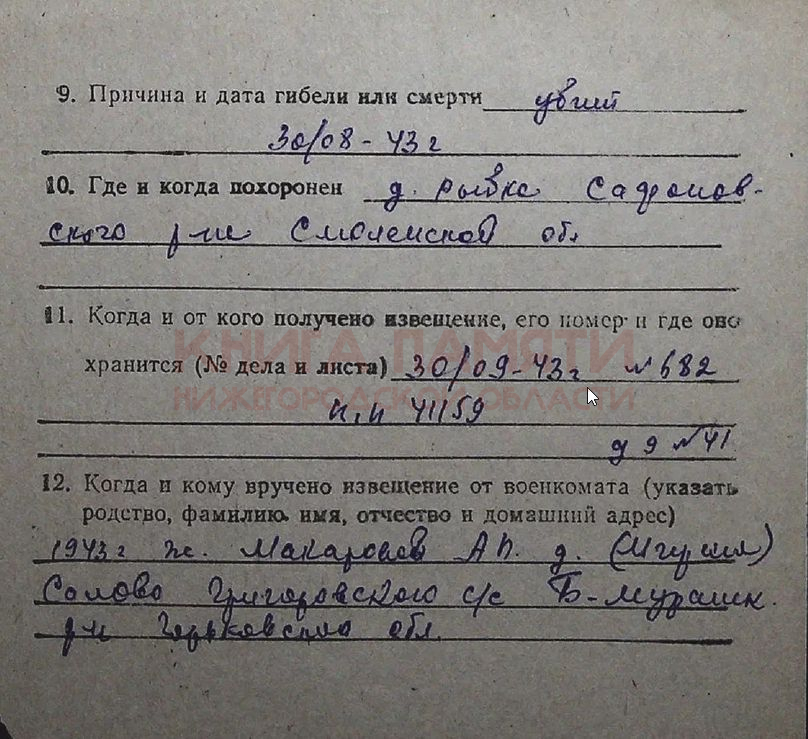 9. Причина и дата гибели или смерти убит
30/08-43г
10. Где и когда похоронен д. Рыбки Сафонов-
ского р-не Смоленской обл
11. Когда и от кого получено извещение, его номер и где оно
КНИГА ПАМЯТИ
хранится (№ дела и листа) 30/09-43г №682
НИЖЕГОРОДСКОЙ ОБЛАСТИ
41159
д 9 №41
12. Когда и кому вручено извещение от военкомата (указать
родство, фамилию, имя, отчество и домашний адрес)
1943г ж. Макаровой АП. д.
Григоровского с/с Б-мурашк.
р-н Горьковской обл.